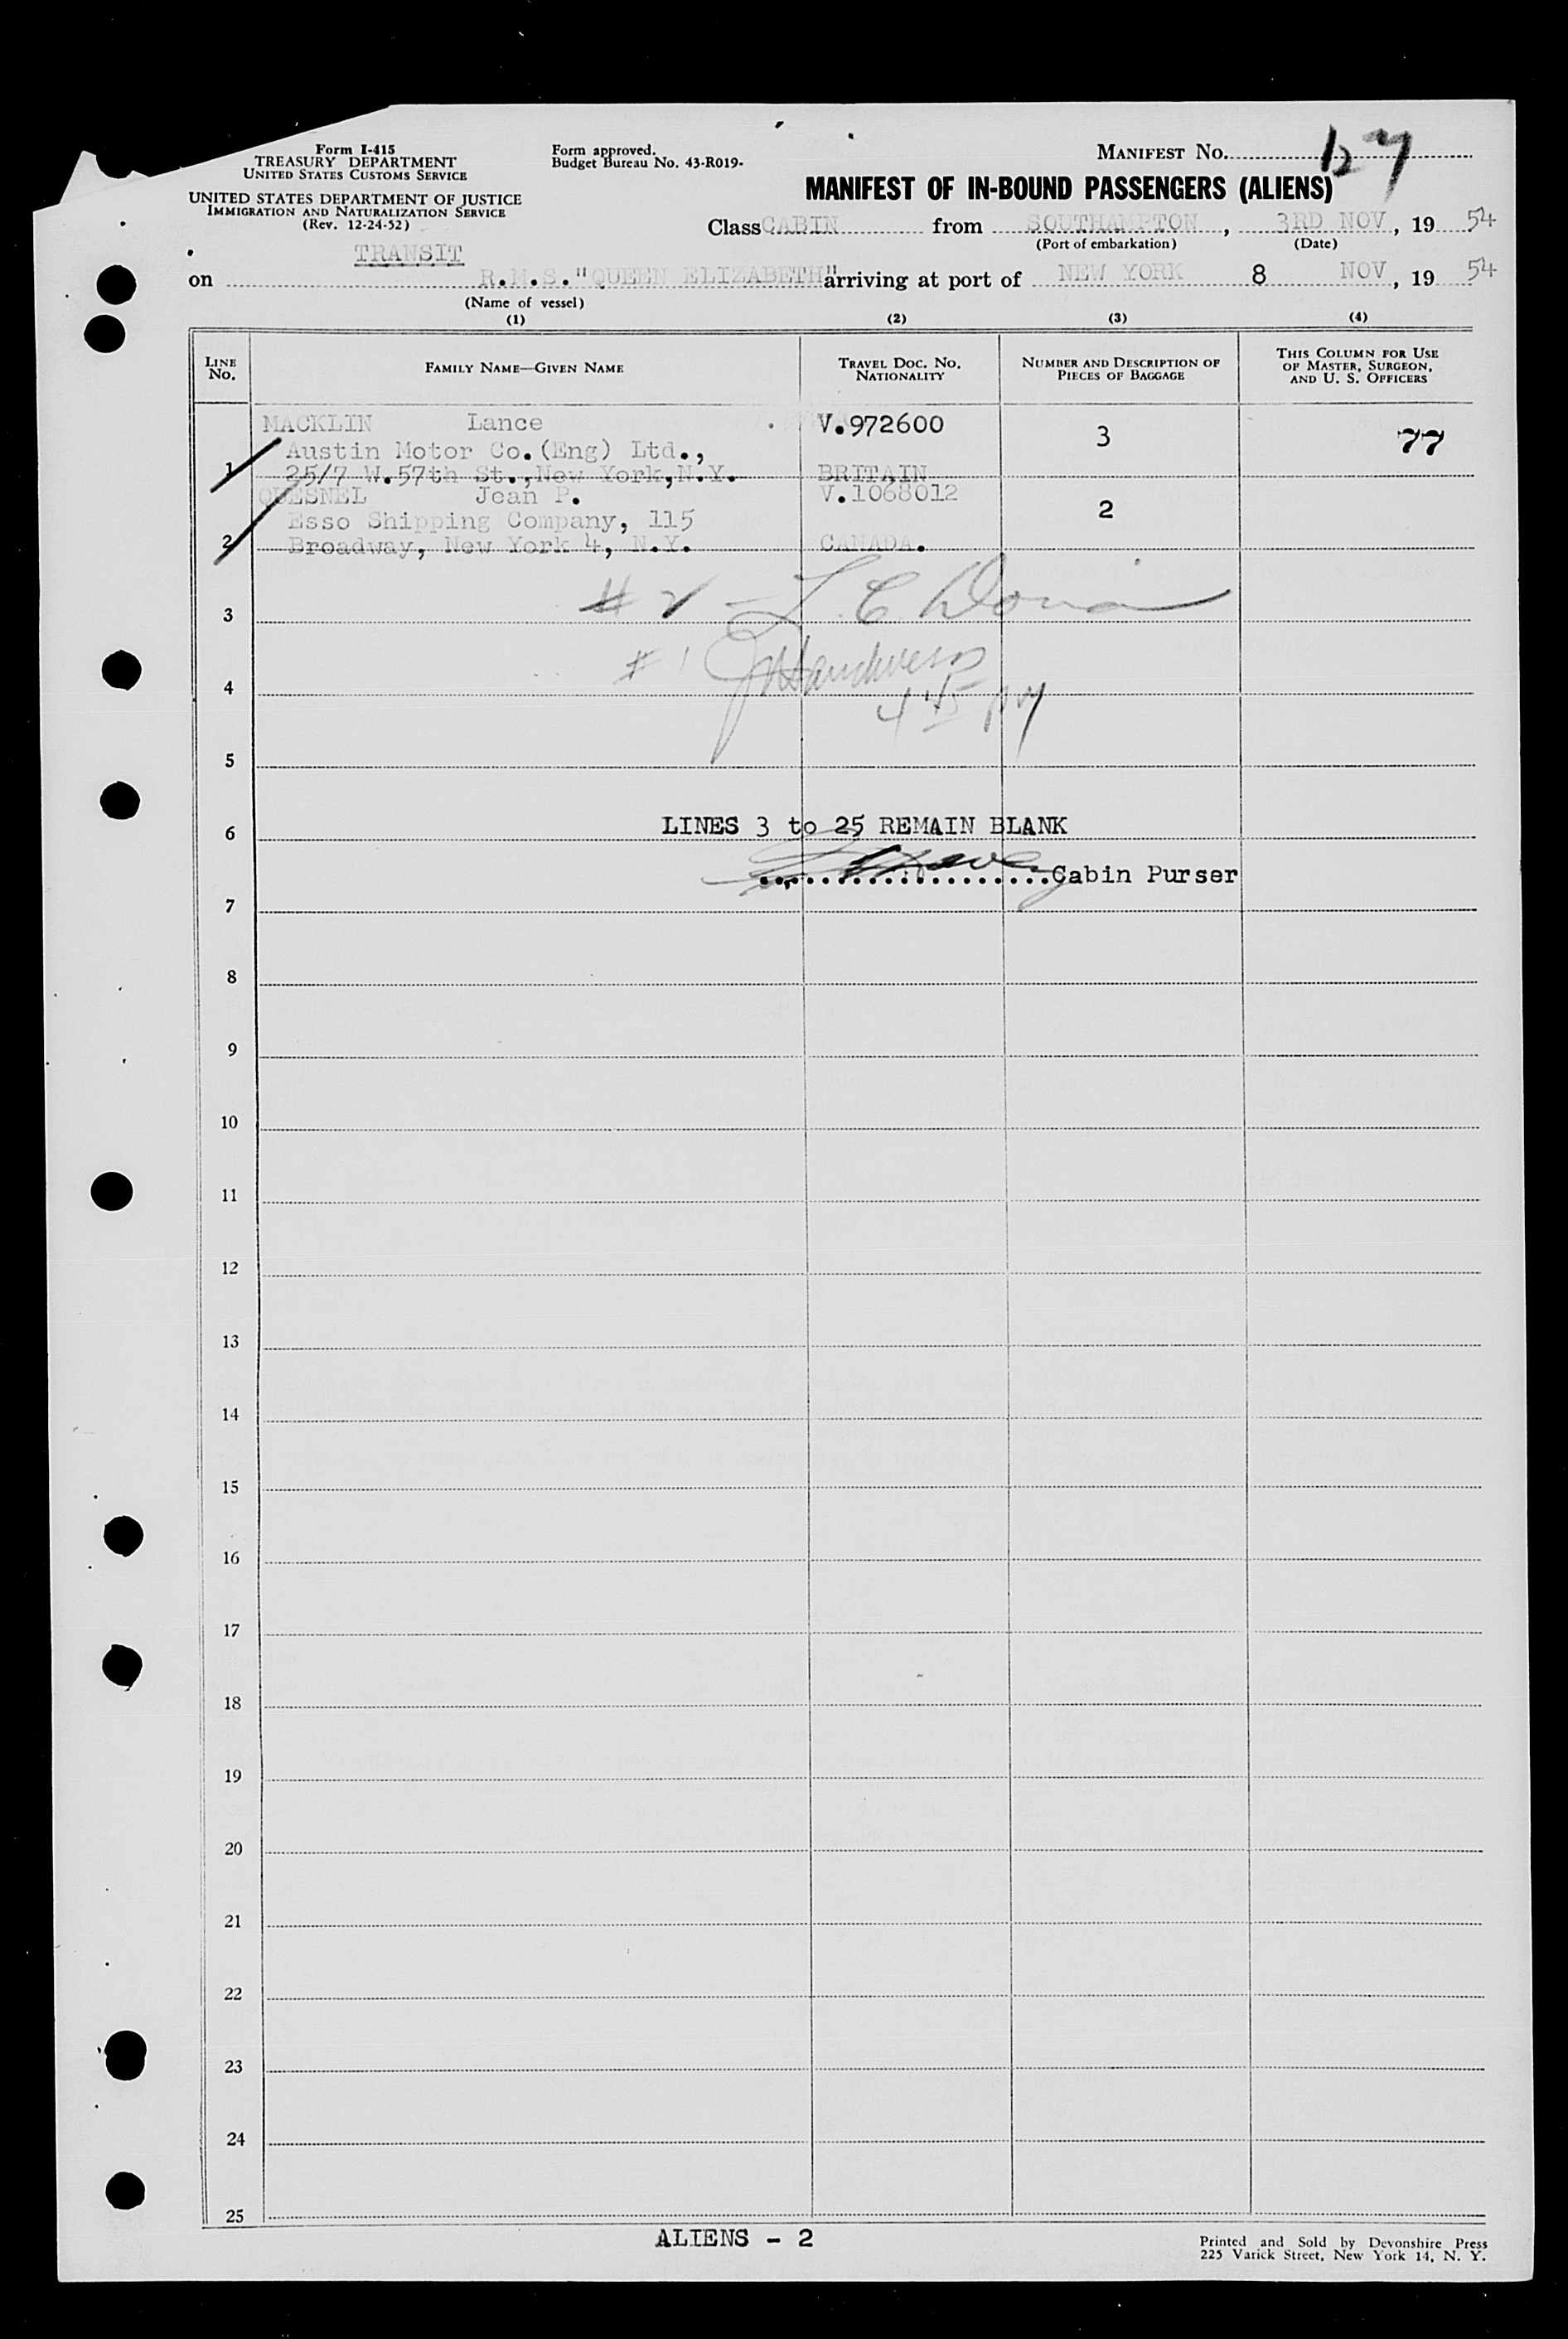 Form I-415
TREASURY DEPARTMENT
UNITED STATES CUSTOMS SERVICE
UNITED STATES DEPARTMENT OF JUSTICE
IMMIGRATION AND NATURALIZATION SERVICE
(Rev. 12-24-52)
Form approved.
Budget Bureau No. 43-R019-
MANIFEST NO. 127
MANIFEST OF IN-BOUND PASSENGERS (ALIENS)
Class CABIN from SOUTHAMPTON, 3RD NOV, 19 54
(Port of embarkation) (Date)
TRANSIT
on R.M.S."QUEEN ELIZABETH" arriving at port of NEW YORK 8 NOV, 19 54
(Name of vessel)
(1) (2) (3) (4)
LINE NO. FAMILY NAME—GIVEN NAME TRAVEL DOC. NO. NATIONALITY NUMBER AND DESCRIPTION OF PIECES OF BAGGAGE THIS COLUMN FOR USE OF MASTER, SURGEON, AND U. S. OFFICERS
MACKLIN Lance V.972600 3 77
Austin Motor Co.(Eng) Ltd.,
1 25/7 W.57th St.,New York,N.Y. BRITAIN
QUESNEL Jean P. V.1068012
Esso Shipping Company, 115 2
2 Broadway, New York 4, N.Y. CANADA.
# 2 - L. C.
3
# 1
4
4 45 PM
5
LINES 3 to 25 REMAIN BLANK
6
Cabin Purser
7
8
9
10
11
12
13
14
15
16
17
18
19
20
21
22
23
24
25
ALIENS - 2
Printed and Sold by Devonshire Press
225 Varick Street, New York 14, N. Y.